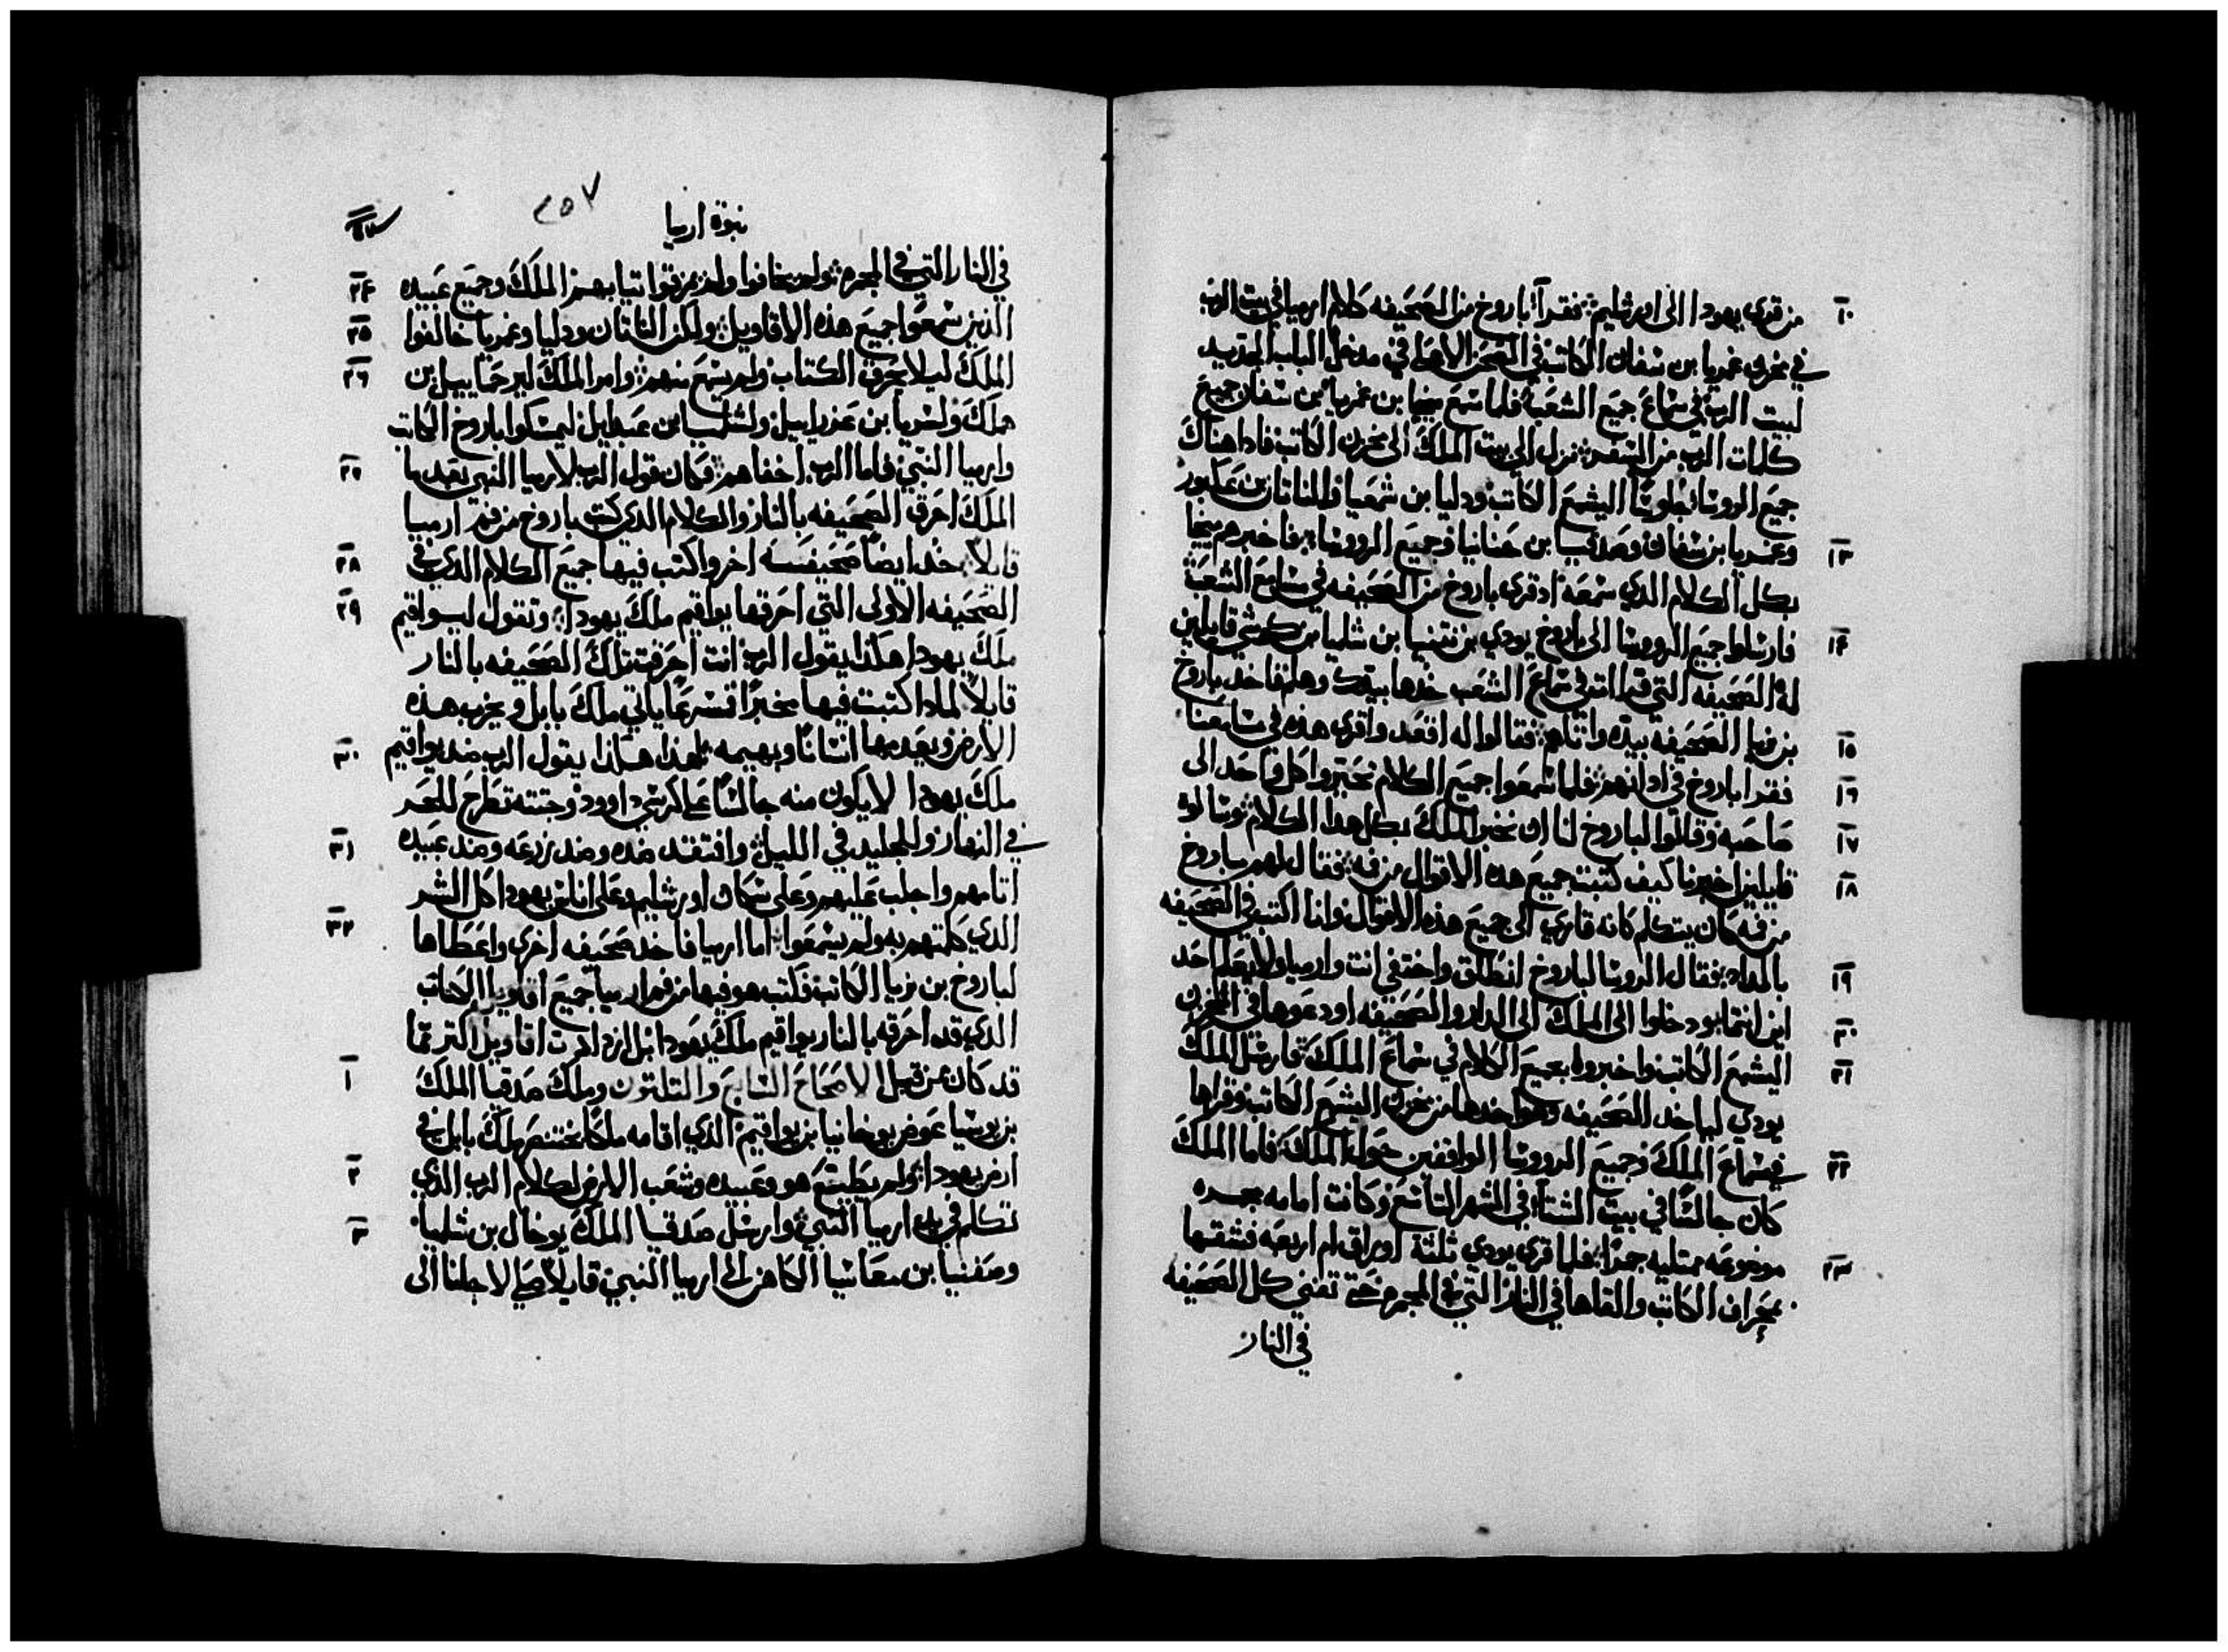 من قري يهودا الى اورشليم فقرآ باروخ من الصحيفه كلام ارميا في بيت الرب ١٠
في مخزن غمريا بن سفان الكاتب في الصحن الاعلى في مدخل الباب الجديد
لبيت الرب في سماع جميع الشعب فلما سمع ميخا بن غمريا بن سفان جميع
كلمات الرب من السفر نزل الى بيت الملك الى مخزن الكاتب فاذا هناك
جميع الروسا جلوسًا اليشمع الكاتب ودليا بن شمعيا والناتان بن عكبور
وغمريا بن سفان وصدقيا بن حنانيا وجميع الرووسا فاخبرهم ميخا ١٣
بكل الكلام الدي سمعه اد قري باروخ من الصحيفه في مسامع الشعب
فارسلوا جميع الرووسا الى باروخ يودي بن نتنيا بن شلميا بن كوشي قايلين ١٤
له الصحيفه التي قرات في سماع الشعب خدها بيدك وهلم فاخد باروخ
بن نريا الصحيفه بيده واتاهم فقالوا له اقعد واقري هذه في مسامعنا ١٥
فقرا باروخ في ادانهم فلما سمعوا جميع الكلام تحيروا كل واحد الى ١٦
صاحبه وقالوا لباروخ لنا ان نخبر الملك بكل هدا الكلام وسالوه ١٧
قايلين اخبرنا كيف كتبت جميع هده الاقوال من فمه فقال لهم باروخ ١٨
من فمه كان يتكلم كانه قاري الى جميع هذه الاقوال وانا اكتب في الصحيفه
بالمداد فقال الروسا لباروخ انطلق واختفي انت وارميا ولا يعلم احد ١٩
اين انتما ودخلوا الى الملك الى الدار والصحيفه اودعوها في مخزن ٢٠
اليشمع الكاتب واخبروه بجميع الكلام في سماع الملك فارسل الملك ٢١
يودي لياخد الصحيفه وهو اخدها من مخزن اليشمع الكاتب وقراها
في سماع الملك وجميع الرووسا الواقفين حول الملك فاما الملك ٢٢
كان جالسًا في بيت الشتا في الشهر التاسع وكانت امامه مجمره
موضوعه ممتليه جمرًا فلما قري يودي ثلثة اوراق ام اربعه فشقها ٢٣
بمجراف الكاتب والقاها في النار التي في المجمره حتى تفني كل الصحيفه
في النار
نبوة ارميا ٢٥٧
في النار التي في المجمره ولم يخافوا ولم يمزقوا تيابهم الملك وجميع عبيده ٢٤
الذين سمعوا جميع هذه الاقاويل ولكن الناتان ودليا وغمريا خالفوا ٢٥
الملك ليلا يحرق الكتاب ولم يسمع منهم وامر الملك ليرحماييل بن ٢٦
ملك ولسريا بن عزراييل ولشلميا بن عبداييل ليمسكوا باروخ الكاتب
وارميا النبي فاما الرب اخفاهم فكان قول الرب لارميا النبي بعد ما ٢٧
الملك احرق الصحيفه بالنار والكلام الدي كتب باروخ من فم ارميا
قايلاً خد ايضًا صحيفه اخر واكتب فيها جميع الكلام الدي في ٢٨
الصحيفه الاولى التي احرقها يواقيم ملك يهودا وتقول ليواقيم ٢٩
ملك يهودا هكذا يقول الرب انت احرقت تلك الصحيفه بالنار
قايلاً لمادا كتبت فيها مخبرًا تسرعًا ياتي ملك بابل ويخرب هذه
الارض ويعدمها انسانًا وبهيمه لهذا هكذا يقول الرب ضد يواقيم ٣٠
ملك يهودا لا يكون منه جالسًا على كرسي داوود وجتته تطرح للحر
في النهار وللجليد في الليل وافتقد ضده وضد زرعه وضد عبيده ٣١
اتامهم واجلب عليهم وعلى سكان اورشليم وعلى اناس يهودا كل الشر
الدي كلمتهم به ولم يسمعوا اما ارميا فاخد صحيفه اخري واعطاها ٣٢
لباروخ بن نريا الكاتب فكتب هو فيها من فم ارميا جميع اقاويل الكتاب
الدي قد احرقه بالنار يواقيم ملك يهودا بل ازدادت اقاويل اكتر مما
قد كان من قبل الاصحاح السابع والتلتون وملك صدقيا الملك ١
بن يوسيا عوض يوخانيا بن يواقيم الذي اقامه ملكًا بختنصر ملك بابل في
ارض يهودا ولم يطيع هو وعبيده وشعب الارض لكلام الرب الدي ٢
تكلم في يد ارميا النبي وارسل صدقيا الملك يوخال بن شلميا ٣
وصفنيا بن معاسيا الكاهن الى ارميا النبي قايلاً صلي لاجلنا الى